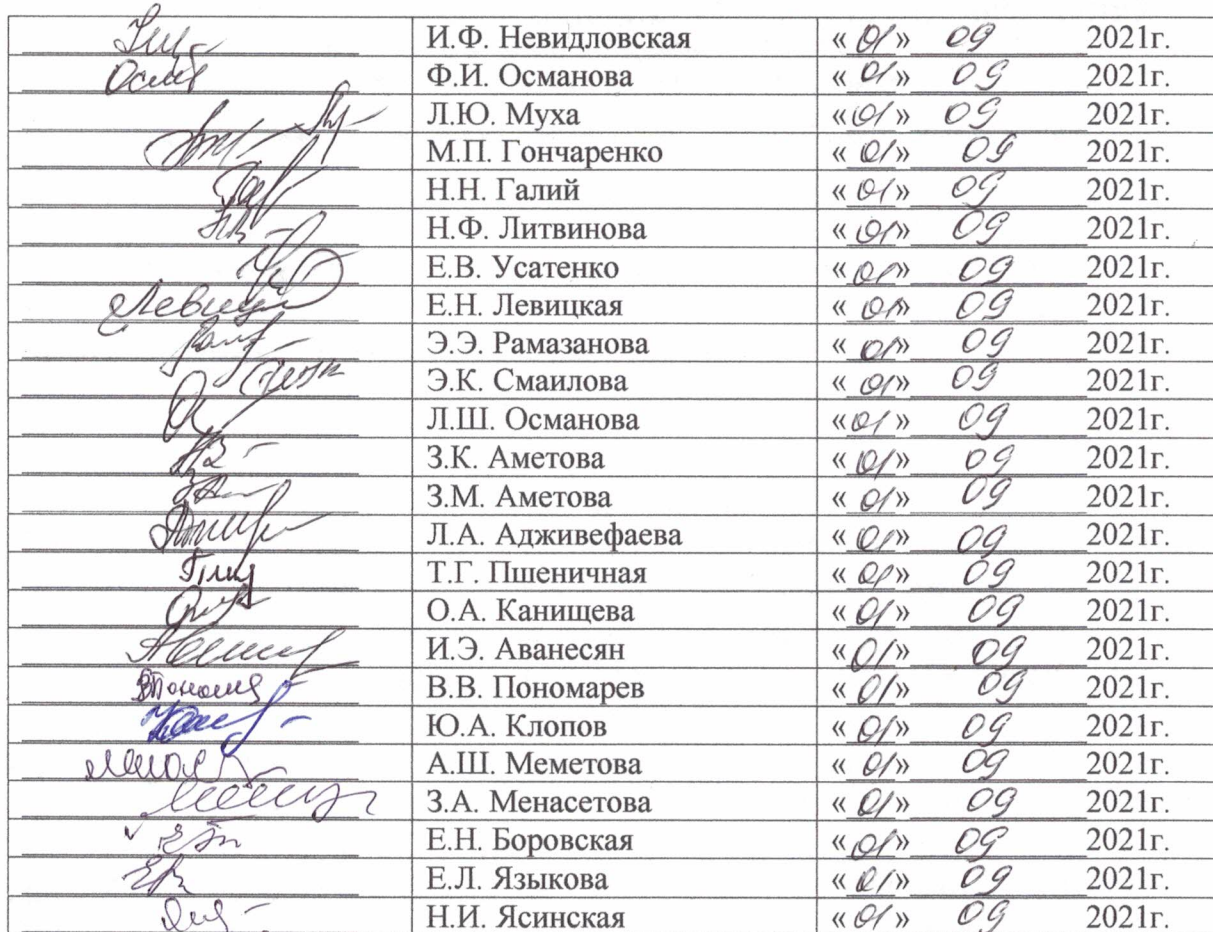 И.Ф. Невидловская «01» 09 2021г.
Ф.И. Османова «01» 09 2021г.
Л.Ю. Муха «01» 09 2021г.
М.П. Гончаренко «01» 09 2021г.
Н.Н. Галий «01» 09 2021г.
Н.Ф. Литвинова «01» 09 2021г.
Е.В. Усатенко «01» 09 2021г.
Е.Н. Левицкая «01» 09 2021г.
Э.Э. Рамазанова «01» 09 2021г.
Э.К. Смаилова «01» 09 2021г.
Л.Ш. Османова «01» 09 2021г.
З.К. Аметова «01» 09 2021г.
З.М. Аметова «01» 09 2021г.
Л.А. Адживефаева «01» 09 2021г.
Т.Г. Пшеничная «01» 09 2021г.
О.А. Канищева «01» 09 2021г.
И.Э. Аванесян «01» 09 2021г.
В.В. Пономарев «01» 09 2021г.
Ю.А. Клопов «01» 09 2021г.
А.Ш. Меметова «01» 09 2021г.
З.А. Менасетова «01» 09 2021г.
Е.Н. Боровская «01» 09 2021г.
Е.Л. Языкова «01» 09 2021г.
Н.И. Ясинская «01» 09 2021г.